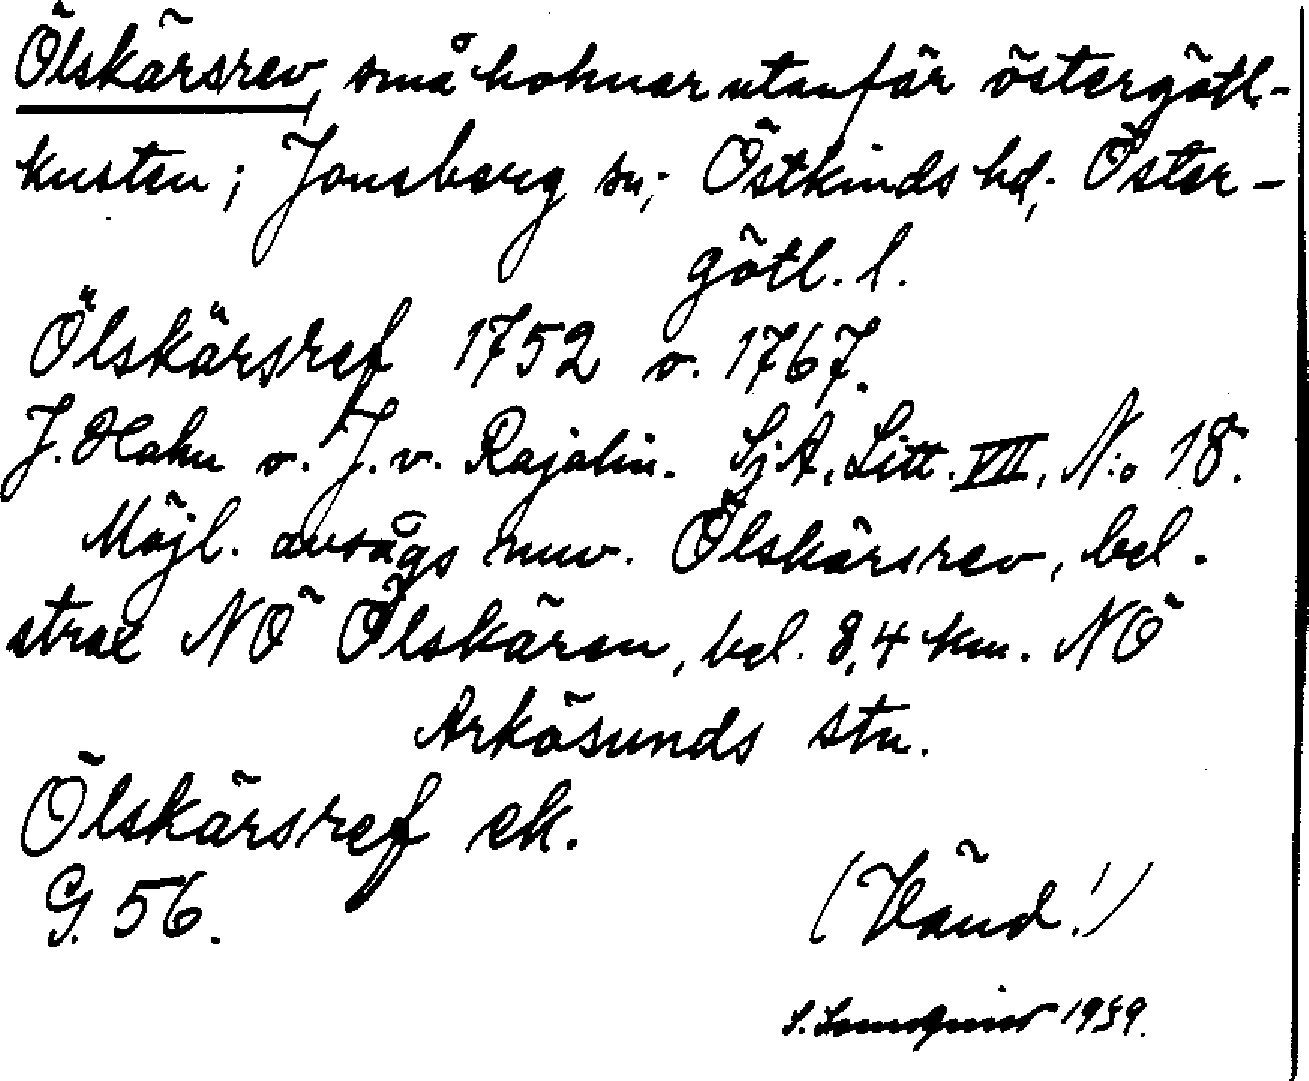 Ölskärsrev, små holmar utanför östergötl.-
kusten; Jonsberg sn; Östkinds hd; Öster-
götl. l.
Ölskärsref 1752 o. 1767.
J. Hahn o. J. v. Rajalin. SjA, Litt. VII, N:o 18.
Möjl. avsågs nuv. Ölskärsrev, bel.
strax NÖ Ölskären, bel. 8,4 km. NÖ
Arkösunds stn.
Ölskärsref ek.
G. 56.
(Vänd!)
S. 1959.